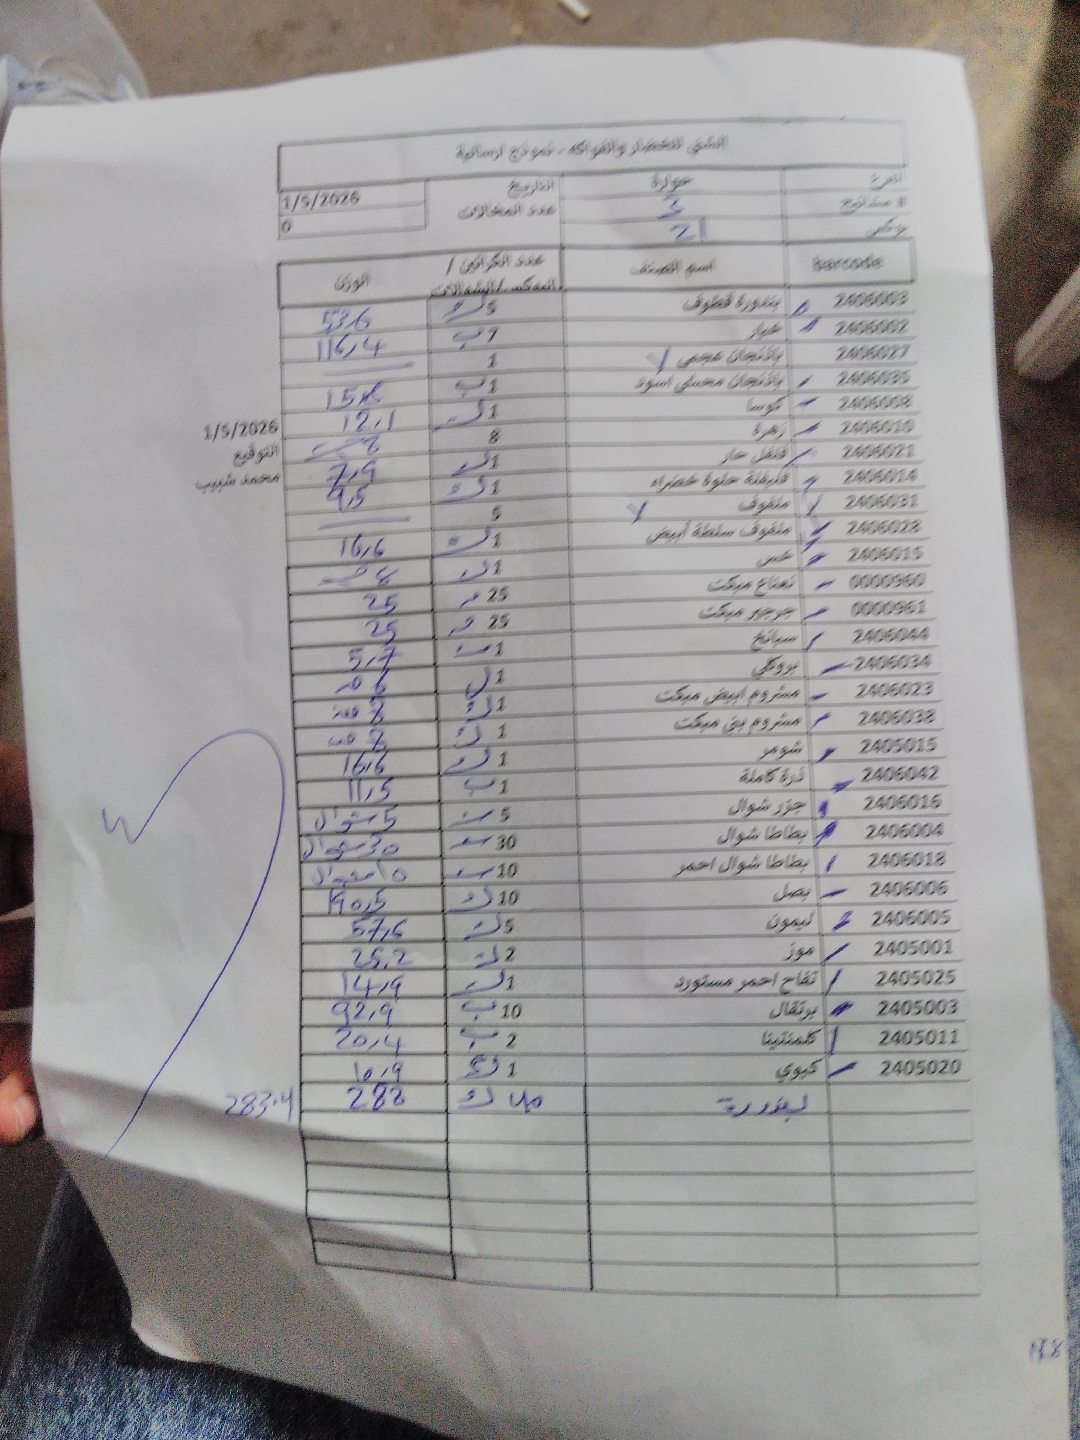 الشني للخضار والفواكه - نموذج ارسالية
الفرع حوارة التاريخ 1/5/2026
# مشاتيح 3 عدد المخالات 0
بوكس 21
barcode اسم الصنف عدد الكراتين / البوكس/الشوالات الوزن
2406003 بندورة قطوف 5 ك 53,6
2406002 خيار 7 ب 116,4
2406027 باذنجان عجمي X 1
2406035 باذنجان محشي اسود 1 ب
2406008 كوسا 1 ك 12,1
2406010 زهرة 8 8
2406021 فلفل حار 1 ك 7,9
2406014 فليفلة حلوة خضراء 1 ك 9,5
2406031 ملفوف X 5
2406028 ملفوف سلطة أبيض 1 ك 16,6
2406015 خس 1 ك 8
0000960 نعناع مبكت 25 25
0000961 جرجير مبكت 25 25
2406044 سبانخ 1 ب 5,7
2406034 بروكلي 1 ك 6
2406023 مشروم ابيض مبكت 1 ك 8
2406038 مشروم بني مبكت 1 ك 8
2405015 شومر 1 ك 16,6
2406042 ذرة كاملة 1 ب 11,5
2406016 جزر شوال 5 5 شوال
2406004 بطاطا شوال 30 30 شوال
2406018 بطاطا شوال احمر 10 10 شوال
2406006 بصل 10 ك 190,5
2406005 ليمون 5 ك 57,6
2405001 موز 2 ك 25,2
2405025 تفاح احمر مستورد 1 ك 14,9
2405003 برتقال 10 ب 92,9
2405011 كلمنتينا 2 ب 20,4
2405020 كيوي 1 ك 10,9
بندورة ك 283 283.4
1/5/2026
التوقيع
محمد شبيب